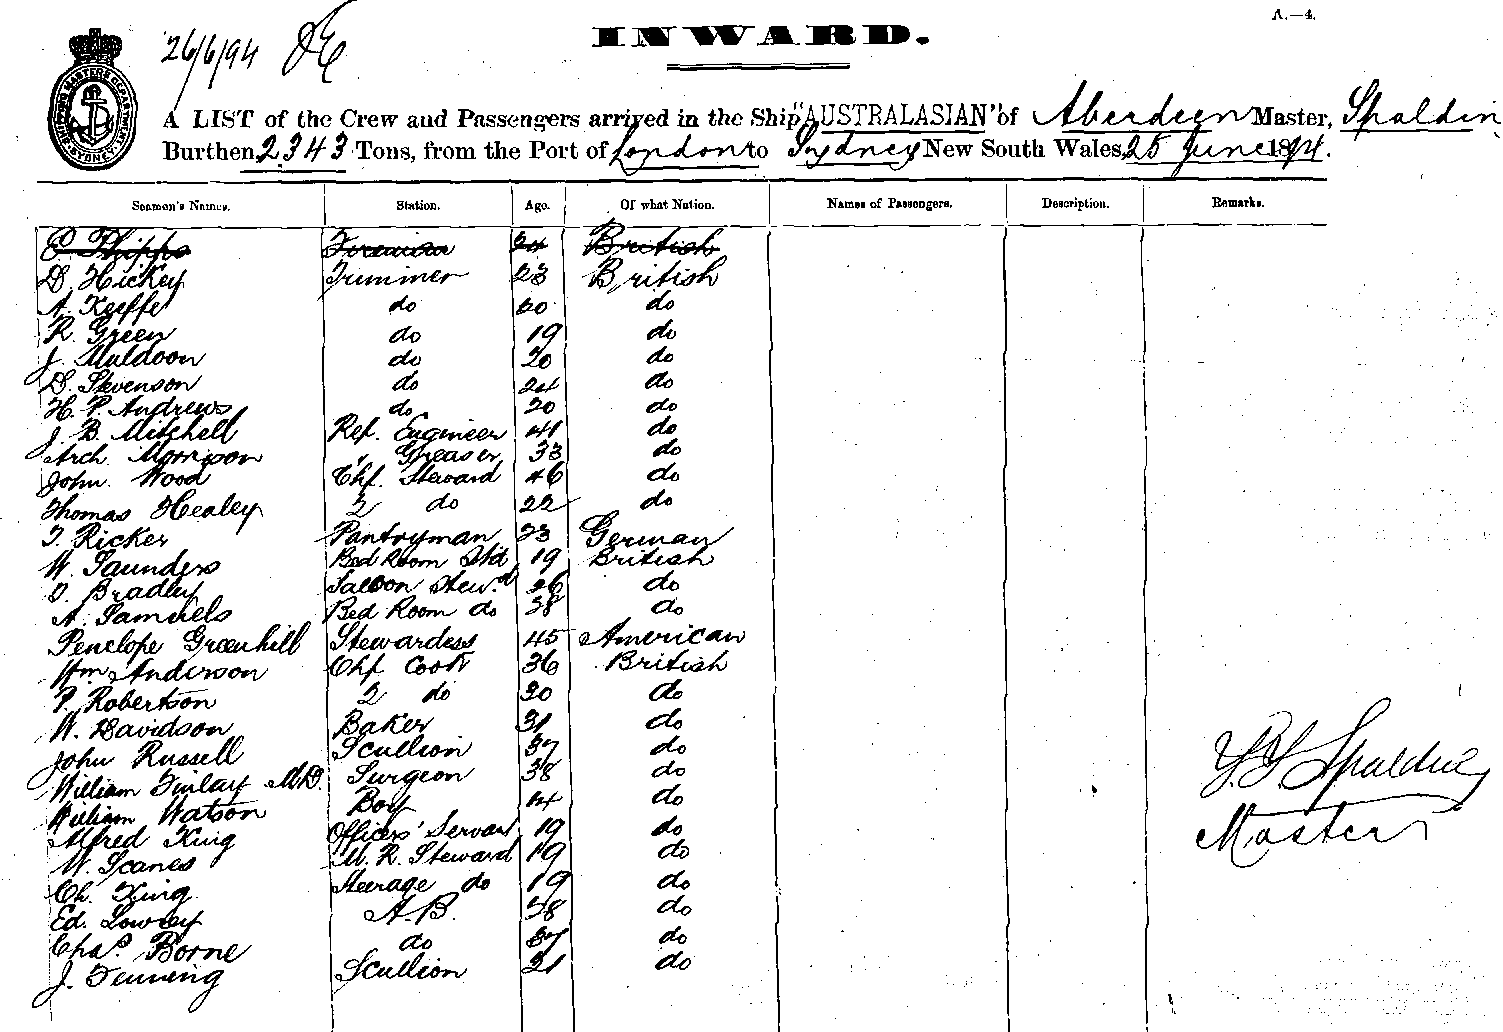 A.—4.
26/6/94
INWARD.
SHIPPING MASTERS DEPARTMENT SYDNEY
A LIST of the Crew and Passengers arrived in the Ship "AUSTRALASIAN" of Aberdeen Master, Spaldin
Burthen 2343 Tons, from the Port of London to Sydney New South Wales, 25 June 1894.
Seamen's Names. Station. Age. Of what Nation. Names of Passengers. Description. Remarks.
E Phipps Fireman 24 British
D. Hickey Trimmer 23 British
A. Keeffe do 20 do
R. Green do 19 do
J. Muldoon do 20 do
D. Stevenson do 24 do
H. P. Andrews do 20 do
J. B. Mitchell Ref. Engineer 41 do
Arch. Morrison " Greaser 33 do
John Wood Chf. Steward 46 do
Thomas Healey 2 do 22 do
T. Ricker Pantryman 23 German
W. Saunders Bed Room Std 19 British
O. Bradley Saloon Stewd 26 do
A. Samuels Bed Room do 38 do
Penelope Greenhill Stewardess 45 American
Wm. Anderson Chf Cook 36 British
P. Robertson 2 do 30 do
W. Davidson Baker 31 do
John Russell Scullion 37 do
William Finlay M.D. Surgeon 38 do
William Watson Boy 14 do
Alfred King Officers' Servant 19 do
W. Scanes M. R. Steward 19 do
Ch. King Steerage do 19 do
Ed. Lowrey A.B. 38 do
Chas. Borne do 37 do
J. Fenning Scullion 21 do
Spalding
Master